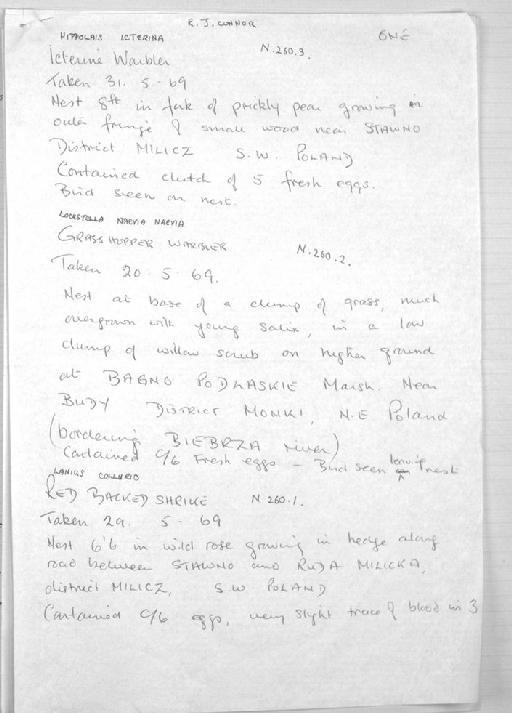 R. J. CONNOR
HIPPOLAIS ICTERINA N.260.3. ONE
Icterine Warbler
Taken 31. 5 - 69
Nest 8ft in fork of prickly pear growing in
outer fringe of small wood near STAWNO
District MILICZ S.W. POLAND
Contained clutch of 5 fresh eggs.
Bird seen on nest.
LOCUSTELLA NAEVIA NAEVIA
GRASSHOPPER WARBLER N.260.2.
Taken 20. 5. 69.
Nest at base of a clump of grass, much
overgrown with young Salix, in a low
clump of willow scrub on higher ground
at BAGNO PODLASKIE Marsh. Near
BUDY District MONKI, N.E Poland
(bordering BIEBRZA river)
Contained C/6 Fresh eggs - Bird seen leaving nest
LANIUS COLLURIO
RED BACKED SHRIKE N 260.1.
Taken 29. 5 - 69
Nest 6'6 in wild rose growing in hedge along
road between STAWNO and RUDA MILICKA,
district MILICZ, S.W POLAND
Contained C/6 eggs, very slight trace of blood in 3